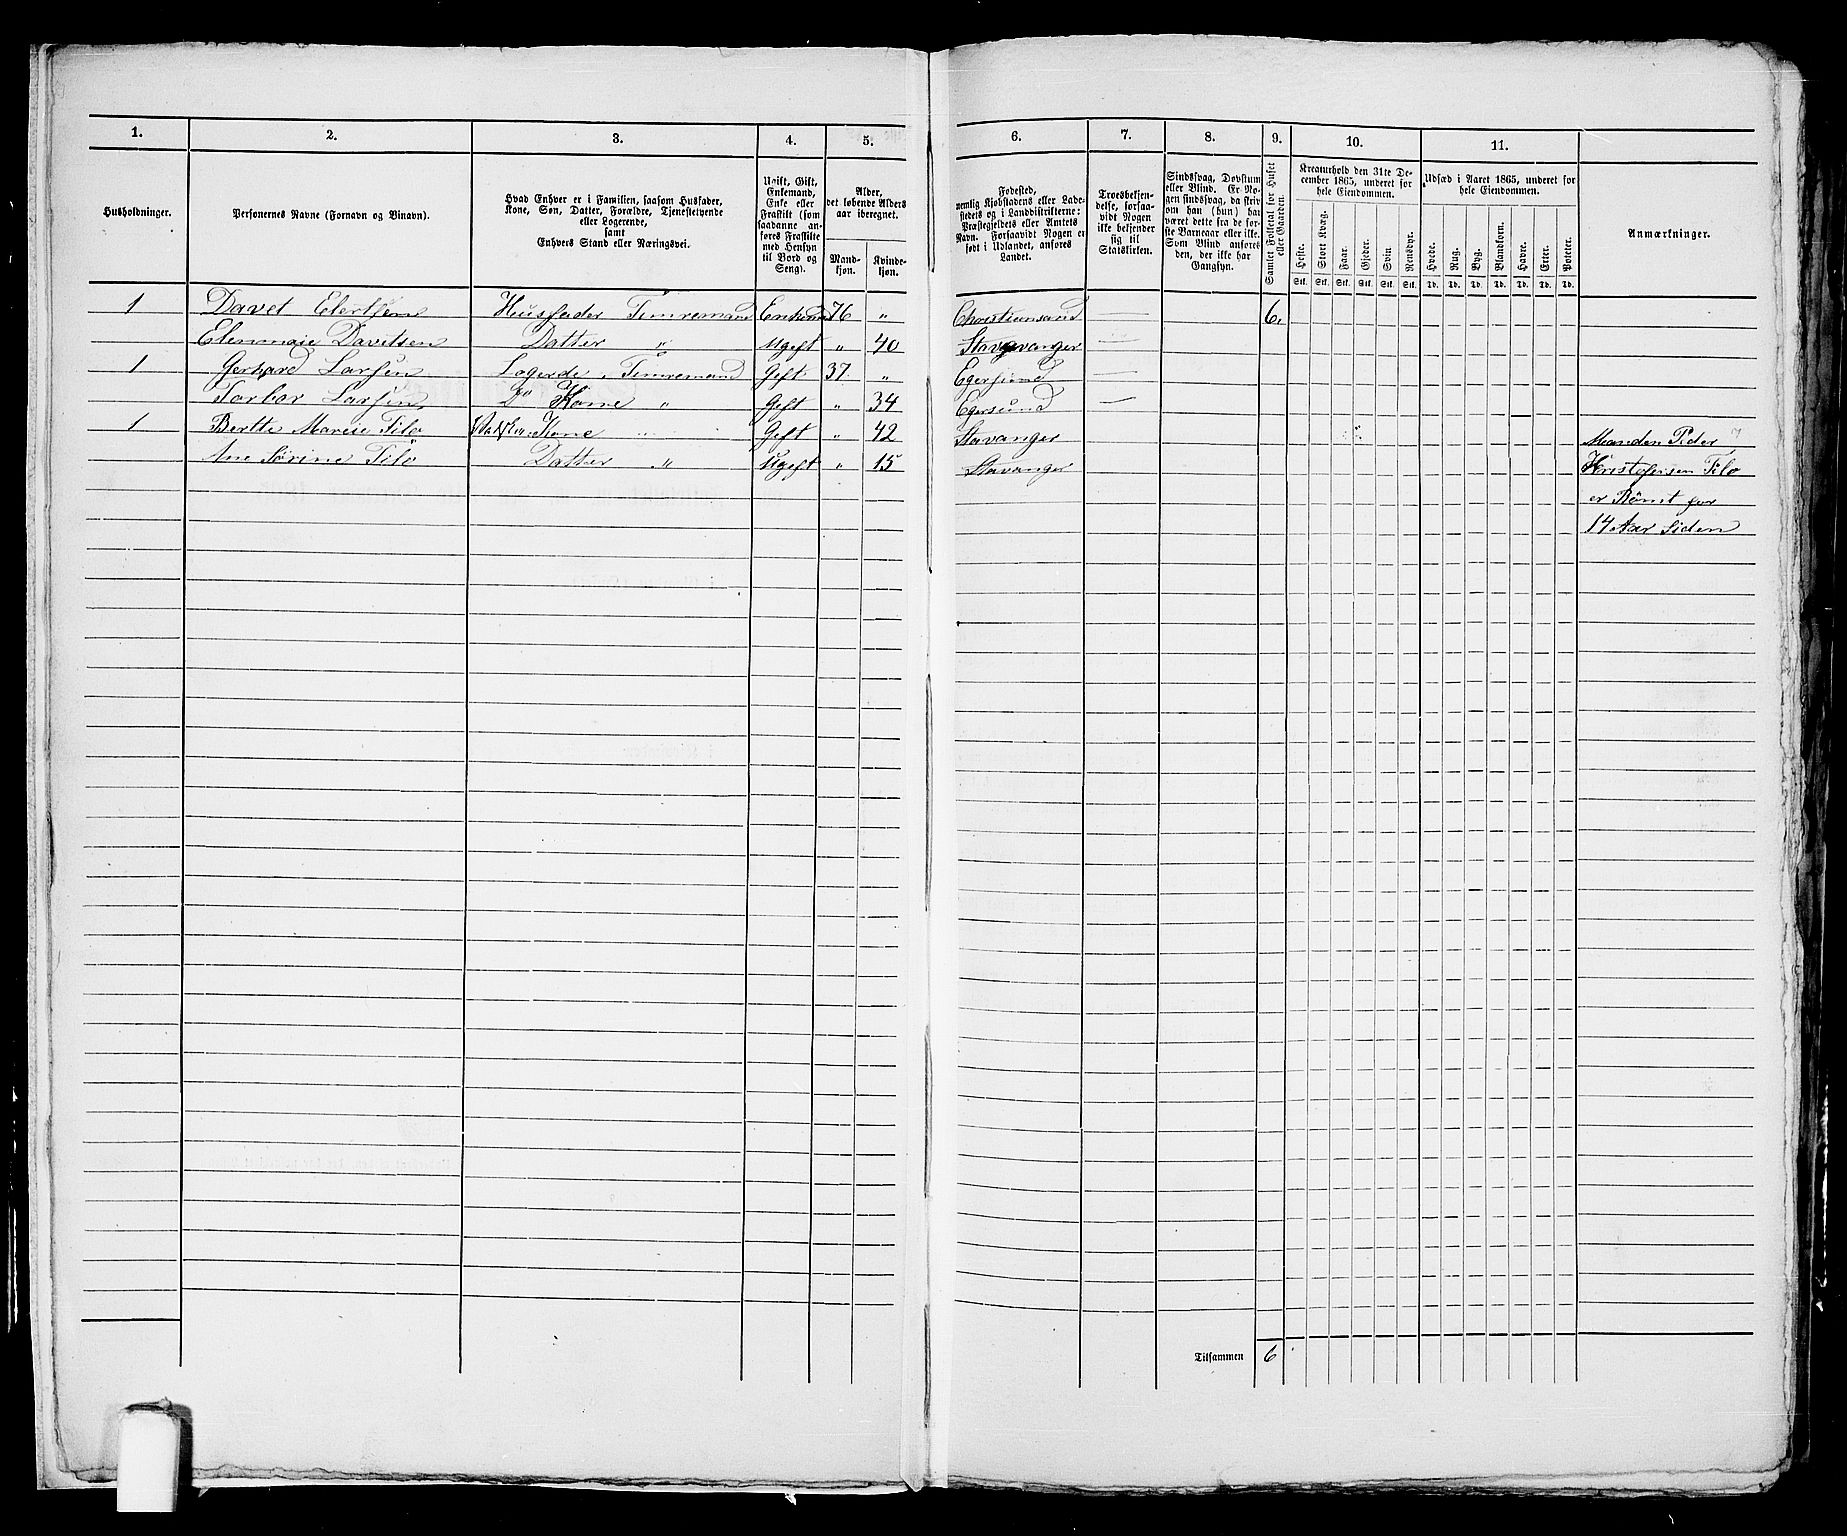 1. 2. 3. 4. 5. 6. 7. 8. 9. 10. 11.
Husholdninger.
Personernes Navne (Fornavn og Binavn).
Hvad Enhver er i Familien, saasom Husfader,
Kone, Søn, Datter, Forældre, Tjenestetyende
eller Logerende,
samt
Enhvers Stand eller Næringsvei.
Ugift, Gift,
Enkemand,
Enke eller
Fraskilt (som
saadanne an-
føres Fraskilte
med Hensyn
til Bord og
Seng).
Alder,
det løbende Alders-
aar iberegnet.
Mand-
kjøn.
Kvinde-
kjøn.
Fødested,
nemlig Kjøbstadens eller Lade-
stedets og i Landdistrikterne:
Præstegjeldets eller Amtets
Navn. Forsaavidt Nogen er
født i Udlandet, anføres
Landet.
Troesbekjen-
delse, forsaa-
vidt Nogen
ikke bekjender
sig til
Statskirken.
Sindssvag, Døvstum
eller Blind. Er No-
gen sindssvag, da skriv
om han (hun) har
været dette fra de før-
ste Barneaar eller ikke.
Som Blind anføres
den, der ikke har
Gangsyn.
Samlet Folketal for Huset
eller Gaarden.
Kreaturhold den 31te De-
cember 1865, underet for
hele Eiendommen.
Heste. Stort Kvæg. Faar. Gjeder. Svin Rensdyr.
Stk. Stk. Stk. Stk. Stk. Stk.
Udsæd i Aaret 1865, underet for
hele Eiendommen.
Hvede. Rug. Byg. Blandkorn. Havre. Erter. Poteter.
Td. Td. Td. Td. Td. Td. Td.
Anmærkninger.
1 Davet Elertsen Husfader Timremand Enkemd 76 „ Christiansand — 6.
Elenmaie Davitsen Datter „ Ugift „ 40 Stavanger
1 Gerhard Larsen Logerde Timremand Gift 37 „ Egersund —
Torbor Larsen Do Kone „ Gift „ 34 Egersund —
1 Berthe Mareie Tilo Kone Gift „ 42 Stavanger Manden Peder
Ane Sørine Tilo Datter „ Ugift „ 15 Stavanger Kristofersen Tilo
er Rømt for
14 Aar siden
Tilsammen 6